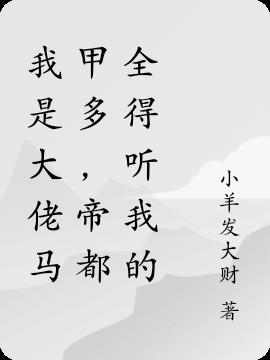 我是大佬马
甲多，帝都
全得听我的
小羊发大财 著